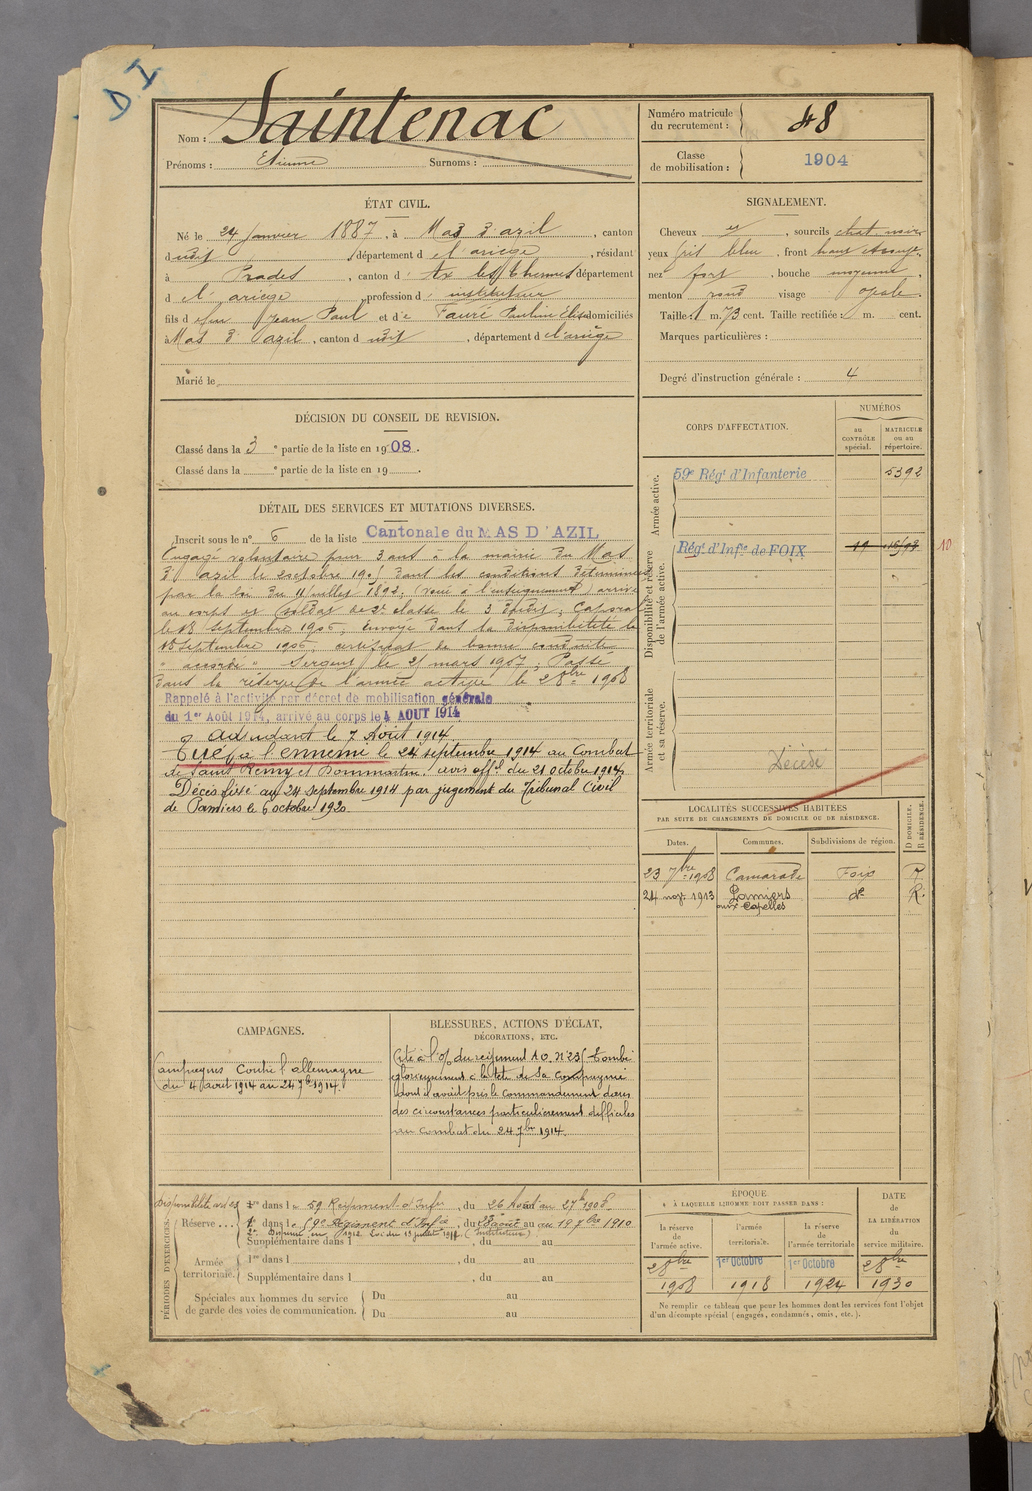 D I
Nom : Saintenac
Prénoms : Etienne Surnoms :
Numéro matricule du recrutement : 48
Classe de mobilisation : 1904
ÉTAT CIVIL.
Né le 24 Janvier 1887, à Mas d'azil, canton
dudit, département de l'ariège, résidant
à Prades, canton d'Ax les Thermes département
d el' ariège, profession d' instituteur
fils d efeu Jean Paul et de Fauré Pauline Elisa domiciliés
à Mas d'azil, canton dudit, département de l'ariège
Marié le
SIGNALEMENT.
Cheveux et, sourcils chat. noir
yeux gris bleu, front haut
nez fort, bouche moyenne,
menton rond visage ovale
Taille : 1 m. 73 cent. Taille rectifiée : m. cent.
Marques particulières :
Degré d'instruction générale : 4
DÉCISION DU CONSEIL DE REVISION.
Classé dans la 3e partie de la liste en 1908.
Classé dans la e partie de la liste en 19 .
CORPS D'AFFECTATION.
NUMÉROS
au CONTRÔLE spécial.
MATRICULE ou au répertoire.
Armée active.
59e Régt d'Infanterie 5392
Disponibilité et réserve de l'armée active.
Régt d'Infie de FOIX 19
10
Armée territoriale et sa réserve.
Décédé
DÉTAIL DES SERVICES ET MUTATIONS DIVERSES.
Inscrit sous le n° 6 de la liste Cantonale du MAS D'AZIL
Engagé volontaire pour 3 ans à la mairie du Mas
d'azil le 2 octobre 190 dans les conditions déterminées
par la loi du 11 juillet 1892, (voué à l'enseignement) arrivé
au corps et soldat de 2e classe le 3 dudit, Caporal
le 18 septembre 1905, envoyé dans la disponibilité le
18 septembre 1905, certificat de bonne conduite
" accordé " Sergent le 21 mars 1907, Passé
dans la réserve de l'armée active le 2 8bre 1908
Rappelé à l'activité par décret de mobilisation générale
du 1er Août 1914, arrivé au corps le 4 AOUT 1914
adjudant le 7 Août 1914
Tué à l'ennemi le 24 septembre 1914 au Combat
de Saint Remy et Dommartin. avis offel du 21 octobre 1914.
Décès fixé au 24 septembre 1914 par jugement du Tribunal Civil
de Pamiers le 6 octobre 1920.
LOCALITÉS SUCCESSIVES HABITÉES
PAR SUITE DE CHANGEMENTS DE DOMICILE OU DE RÉSIDENCE.
Dates. Communes. Subdivisions de région. D DOMICILE. R RÉSIDENCE.
23 7bre 1908 Camarade Foix
24 nov. 1913 Pamiers do R.
aux Capelles
CAMPAGNES.
Campagnes Contre l'allemagne
du 4 aout 1914 au 24 7bre 1914.
BLESSURES, ACTIONS D'ÉCLAT,
DÉCORATIONS, ETC.
Cité à l'O/ du regiment n° 23 Tombé
glorieusement à la tête de sa compagnie
dont il avait pris le commandement dans
des circonstances particulièrement difficiles
au combat du 24 7bre 1914.
PÉRIODES D'EXERCICES.
Disponibilité
Réserve....
1re dans le 59 Régiment d'Infie, du 26 Août au 27 7b 1908
dans le 59e Régiment d'Infie, du 28 août au 19 7bre 1910
2e Dispensé en 1912 Loi du 13 juillet 1911 (Instituteur)
Supplémentaire dans l , du au
Armée territoriale.
1re dans l , du au
Supplémentaire dans l , du au
Spéciales aux hommes du service de garde des voies de communication.
Du au
Du au
ÉPOQUE
A LAQUELLE L'HOMME DOIT PASSER DANS :
la réserve de l'armée active. l'armée territoriale. la réserve de l'armée territoriale
DATE DE LA LIBÉRATION du service militaire.
2 8bre 1908
1er Octobre 1918
1er Octobre 1924
2 8bre 1930
Ne remplir ce tableau que pour les hommes dont les services font l'objet
d'un décompte spécial (engagés, condamnés, omis, etc.).